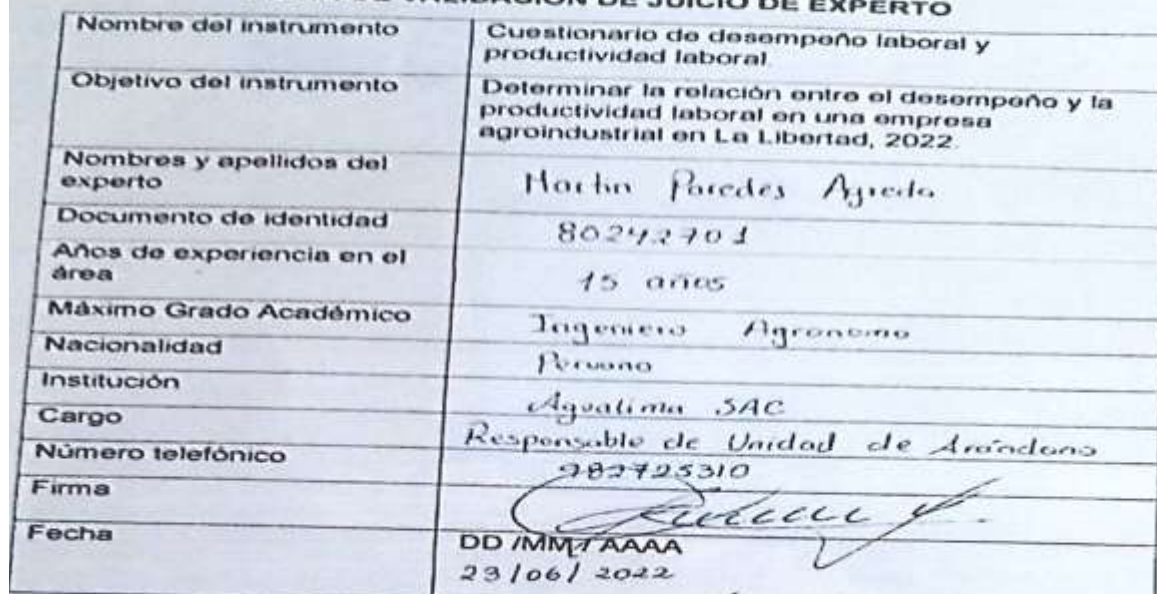 DE VALIDACIÓN DE JUICIO DE EXPERTO
Nombre del instrumento
Cuestionario de desempeño laboral y
productividad laboral.
Objetivo del instrumento
Determinar la relación entre el desempeño y la
productividad laboral en una empresa
agroindustrial en La Libertad, 2022.
Nombres y apellidos del
experto
Martin Paredes Agreda
Documento de identidad
80242701
Años de experiencia en el
área
15 años
Máximo Grado Académico
Ingeniero Agronomo
Nacionalidad
Peruano
Institución
Agualima SAC
Cargo
Responsable de Unidad de Arándano
Número telefónico
982725310
Firma
Fecha
DD /MM/ AAAA
23/06/2022